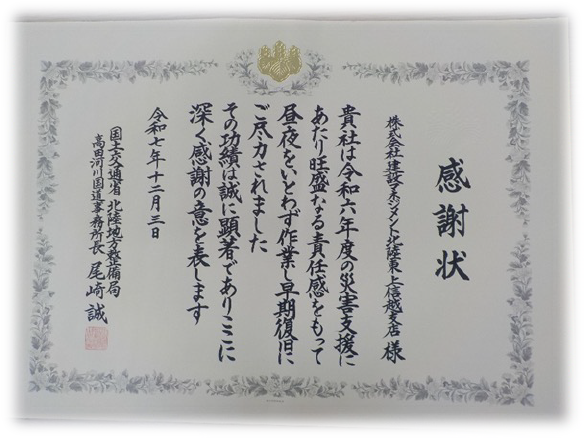 感謝状
株式会社建設マネジメント北陸東上信越支店 様
貴社は令和六年度の災害支援に
あたり旺盛なる責任感をもって
昼夜をいとわず作業し早期復旧に
ご尽力されました
その功績は誠に顕著でありここに
深く感謝の意を表します
令和七年十二月三日
国土交通省 北陸地方整備局
高田河川国道事務所長 尾崎 誠